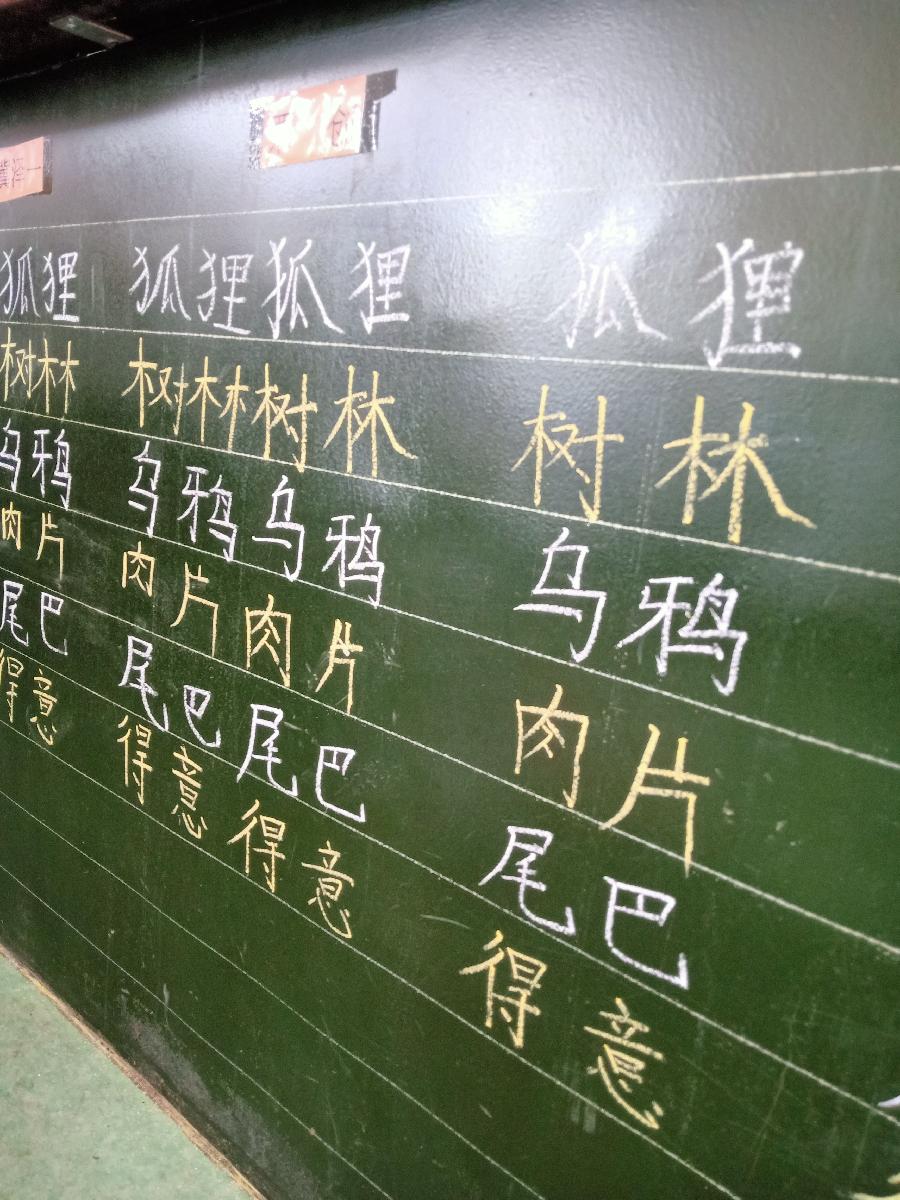 狐狸 狐狸狐狸 狐狸
树林 树林树林 树林
乌鸦 乌鸦乌鸦 乌鸦
肉片 肉片肉片 肉片
尾巴 尾巴尾巴 尾巴
得意 得意得意 得意